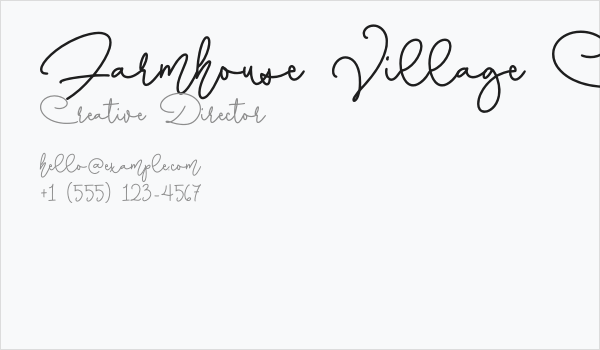 Farmhouse Village
Creative Director
hello@example.com
+1 (555) 123-4567